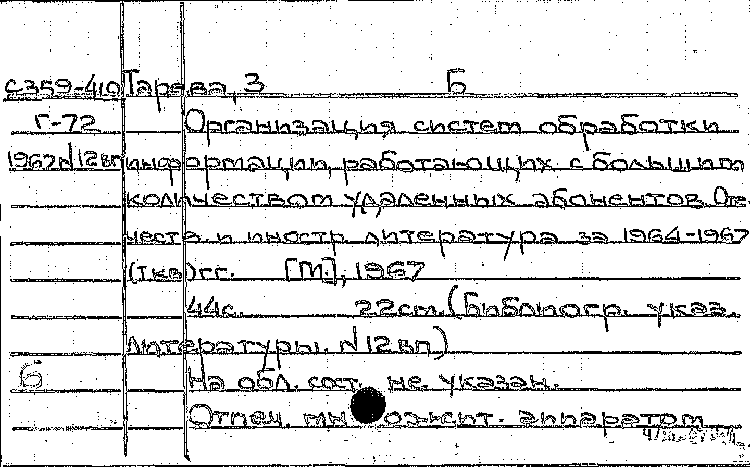 С359-410 Тарева, З Б
Г-72 Организация систем обработки
1967 N12вп информации, работающих с большим
количеством удаленных абонентов. Оте-
честв. и иностр. литература за 1964-1967
(Iкв) гг. [М.], 1967
44с. 22см. (Библиогр. указ.
литературы. N12вп)
Б На обл. сост. не указан.
Отпеч. множит. аппаратом